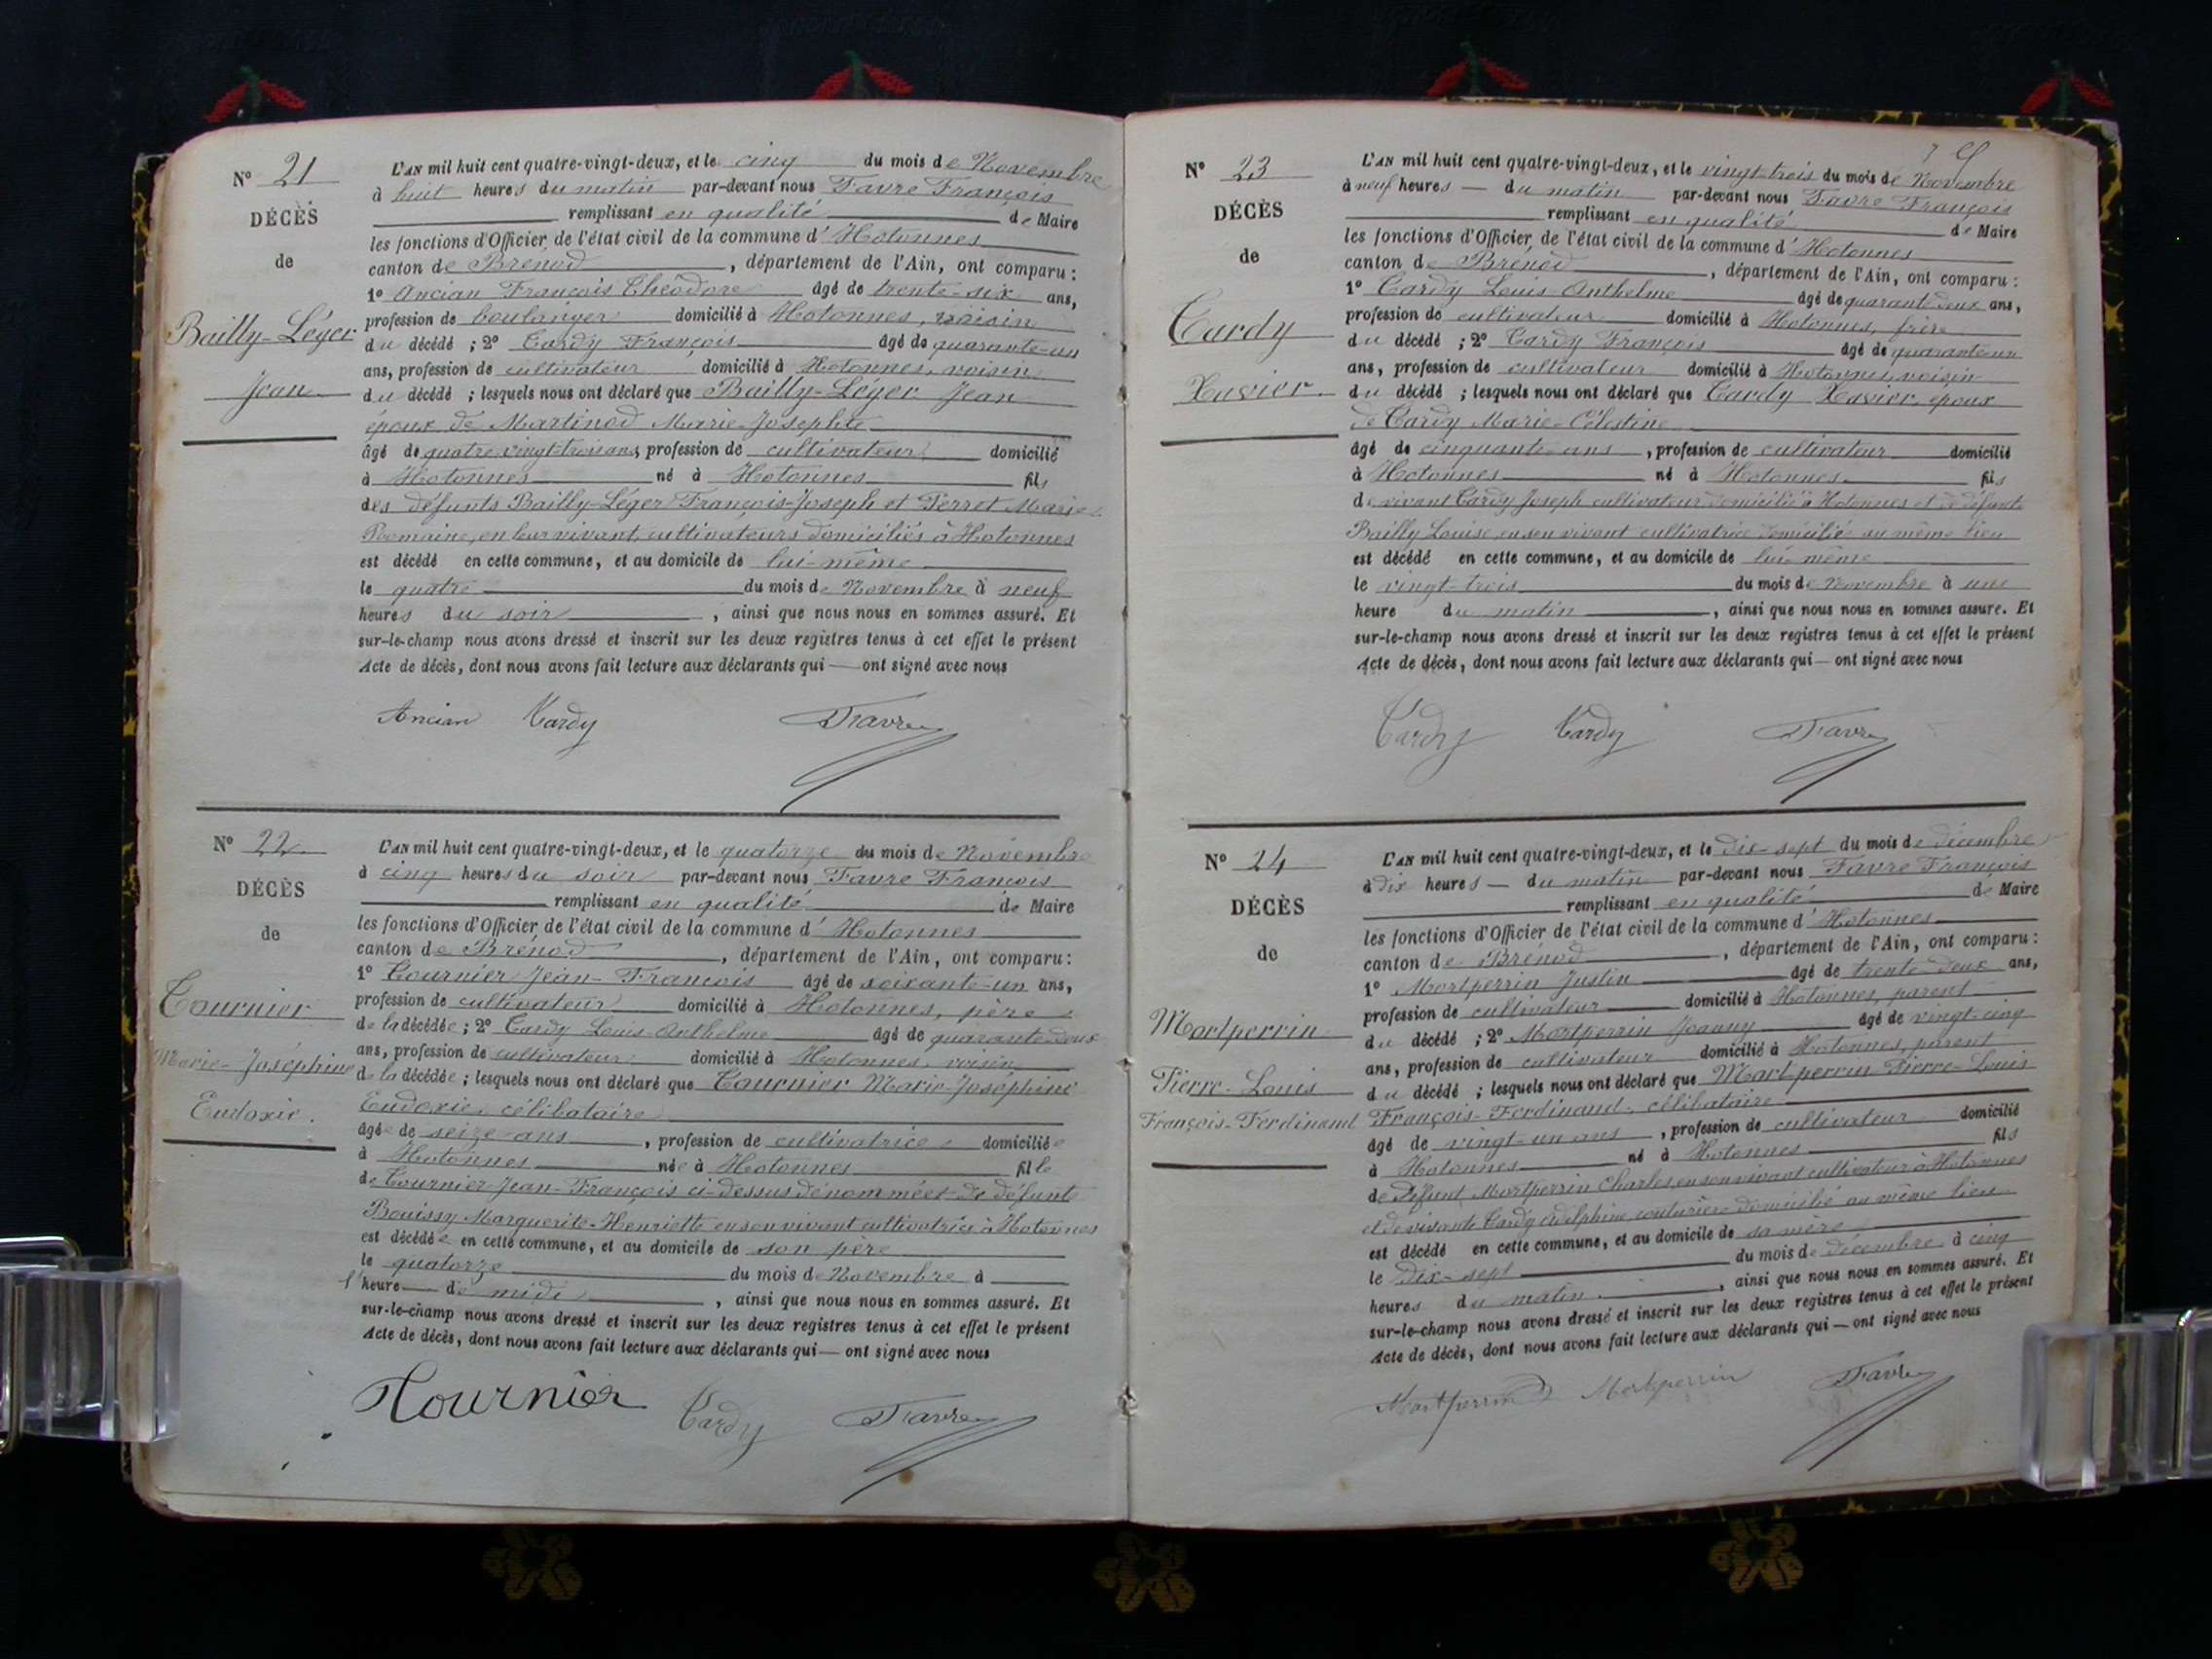 N° 21
DÉCÈS
de
Bailly-Léger
Jean
L'AN mil huit cent quatre-vingt-deux, et le cinq du mois de Novembre
à huit heures du matin par-devant nous Favre François
remplissant en qualité de Maire
les fonctions d'Officier de l'état civil de la commune d'Hotonnes
canton de Brénod, département de l'Ain, ont comparu :
1° Ancian François Théodore âgé de trente-six ans,
profession de boulanger domicilié à Hotonnes, voisin
du décédé ; 2° Tardy François âgé de quarante-un
ans, profession de cultivateur domicilié à Hotonnes, voisin
du décédé ; lesquels nous ont déclaré que Bailly-Léger Jean
époux de Martinod Marie-Josephte
âgé de quatre-vingt-trois ans, profession de cultivateur domicilié
à Hotonnes né à Hotonnes fils
des défunts Bailly-Léger François-Joseph et Perret Marie
Romaine, en leur vivant, cultivateurs domiciliés à Hotonnes
est décédé en cette commune, et au domicile de lui-même
le quatre du mois de Novembre à neuf
heures du soir, ainsi que nous nous en sommes assuré. Et
sur-le-champ nous avons dressé et inscrit sur les deux registres tenus à cet effet le présent
Acte de décès, dont nous avons fait lecture aux déclarants qui — ont signé avec nous
Ancian Tardy Favre
N° 22
DÉCÈS
de
Tournier
Marie-Joséphine
Eudoxie.
L'AN mil huit cent quatre-vingt-deux, et le quatorze du mois de Novembre
à cinq heures du soir par-devant nous Favre François
remplissant en qualité de Maire
les fonctions d'Officier de l'état civil de la commune d'Hotonnes
canton de Brénod, département de l'Ain, ont comparu :
1° Tournier Jean-François âgé de soixante-un ans,
profession de cultivateur domicilié à Hotonnes, père
de la décédée ; 2° Tardy Louis-Anthelme âgé de quarante-deux
ans, profession de cultivateur domicilié à Hotonnes, voisin
de la décédée ; lesquels nous ont déclaré que Tournier Marie-Joséphine
Eudoxie, célibataire
âgée de seize ans, profession de cultivatrice domiciliée
à Hotonnes née à Hotonnes fille
de Tournier Jean-François ci-dessus dénommé et de défunte
Bouissy Marguerite-Henriette en son vivant cultivatrice à Hotonnes
est décédée en cette commune, et au domicile de son père
le quatorze du mois de Novembre à
l'heure de midi, ainsi que nous nous en sommes assuré. Et
sur-le-champ nous avons dressé et inscrit sur les deux registres tenus à cet effet le présent
Acte de décès, dont nous avons fait lecture aux déclarants qui — ont signé avec nous
Tournier Tardy Favre
N° 23
DÉCÈS
de
Tardy
Xavier
L'AN mil huit cent quatre-vingt-deux, et le vingt-trois du mois de Novembre
à neuf heures — du matin par-devant nous Favre François
remplissant en qualité de Maire
les fonctions d'Officier de l'état civil de la commune d'Hotonnes
canton de Brénod, département de l'Ain, ont comparu :
1° Tardy Louis-Anthelme âgé de quarante-deux ans,
profession de cultivateur domicilié à Hotonnes, frère
du décédé ; 2° Tardy François âgé de quarante-un
ans, profession de cultivateur domicilié à Hotonnes, voisin
du décédé ; lesquels nous ont déclaré que Tardy Xavier, époux
de Tardy Marie-Célestine
âgé de cinquante ans, profession de cultivateur domicilié
à Hotonnes né à Hotonnes fils
de vivant Tardy Joseph cultivateur domicilié à Hotonnes et de défunte
Bailly Louise, en son vivant cultivatrice domiciliée au même lieu
est décédé en cette commune, et au domicile de lui-même
le vingt-trois du mois de Novembre à une
heure du matin, ainsi que nous nous en sommes assuré. Et
sur-le-champ nous avons dressé et inscrit sur les deux registres tenus à cet effet le présent
Acte de décès, dont nous avons fait lecture aux déclarants qui — ont signé avec nous
Tardy Tardy Favre
N° 24
DÉCÈS
de
Mortperrin
Pierre-Louis
François-Ferdinand
L'AN mil huit cent quatre-vingt-deux, et le dix-sept du mois de décembre
à dix heures — du matin par-devant nous Favre François
remplissant en qualité de Maire
les fonctions d'Officier de l'état civil de la commune d'Hotonnes
canton de Brénod, département de l'Ain, ont comparu :
1° Mortperrin Justin âgé de trente-deux ans,
profession de cultivateur domicilié à Hotonnes, parent
du décédé ; 2° Mortperrin Joanny âgé de vingt-cinq
ans, profession de cultivateur domicilié à Hotonnes, parent
du décédé ; lesquels nous ont déclaré que Mortperrin Pierre-Louis
François-Ferdinand, célibataire
âgé de vingt-un ans, profession de cultivateur domicilié
à Hotonnes né à Hotonnes fils
de défunt Mortperrin Charles, en son vivant cultivateur à Hotonnes
et de vivante Tardy Adelphine, couturière domicilié au même lieu
est décédé en cette commune, et au domicile de sa mère
le dix-sept du mois de décembre à cinq
heures du matin, ainsi que nous nous en sommes assuré. Et
sur-le-champ nous avons dressé et inscrit sur les deux registres tenus à cet effet le présent
Acte de décès, dont nous avons fait lecture aux déclarants qui — ont signé avec nous
Mortperrin Mortperrin Favre